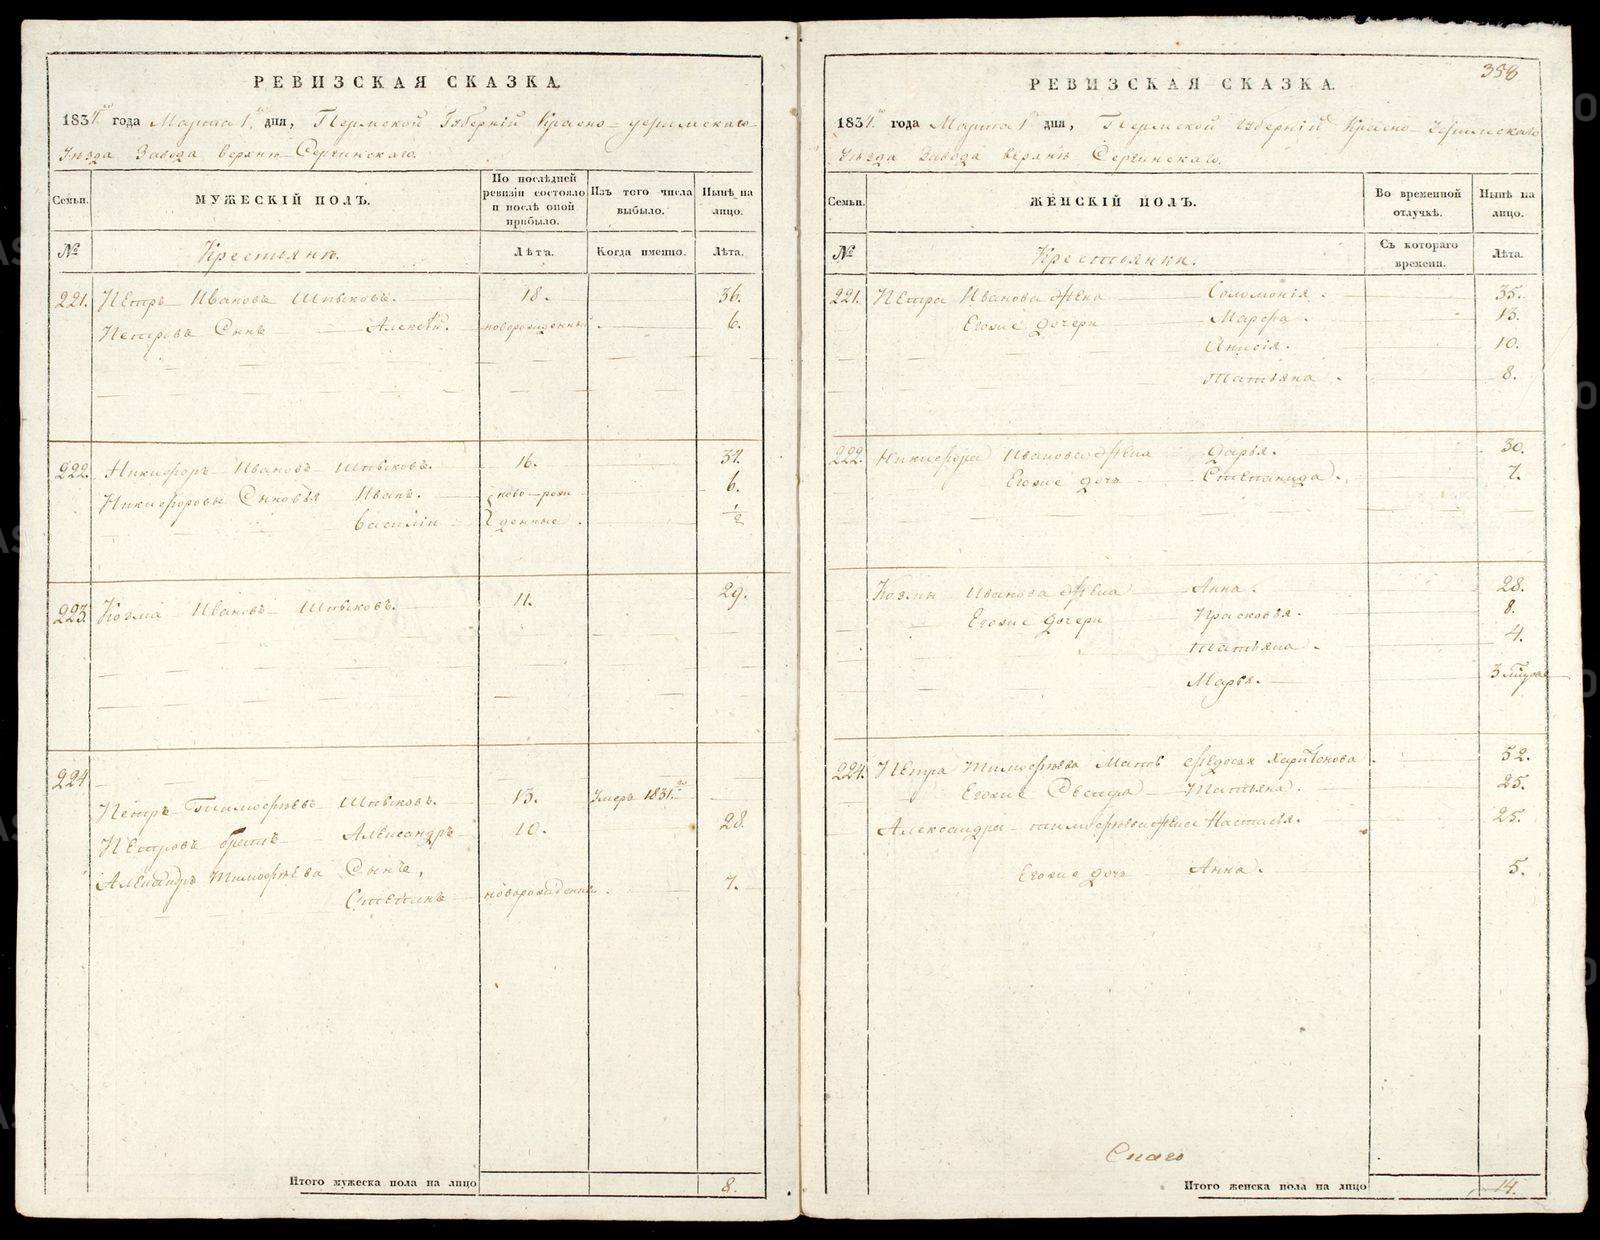 РЕВИЗСКАЯ СКАЗКА.
1834 года Марта 1 дня, Пермской Губерніи Красно-уфимскаго
Уѣзда Завода Верхнѣ-Сергинскаго.
Семьи.
МУЖЕСКІЙ ПОЛЪ.
По послѣдней ревизіи состояло и послѣ оной прибыло.
Изъ того числа выбыло.
Нынѣ на лицо.
№
Крестьянѣ.
Лѣта.
Когда именно.
Лѣта.
221. Петръ Ивановъ Шпыковъ. 18. 36.
Петровъ Сынъ Алексѣй. новорожденный 6.
222. Никифоръ Ивановъ Шпыковъ. 16. 34.
Никифоровы Сыновья Иванъ. ново-рож- 6.
Василій денные. ½
223. Козма Ивановъ Шпыковъ. 11. 29.
224
Петръ Тимофѣевъ Шпыковъ. 13. Умеръ 1831.го
Петровъ братъ Александръ 10. 28.
Александръ Тимофѣева Сынъ,
Степанъ новорожденный. 7.
Итого мужеска пола на лицо 8.
358
РЕВИЗСКАЯ СКАЗКА.
1834. года Марта 1 дня, Пермской Губерніи Красно-Уфимскаго
Уѣзда Завода Верхнѣ Сергинскаго.
Семьи.
ЖЕНСКІЙ ПОЛЪ.
Во временной отлучкѣ.
Нынѣ на лицо.
№
Крестьянки.
Съ котораго времени.
Лѣта.
221. Петра Иванова жена Соломонія. 35.
Егоже дочери Марфа. 13.
Анисія. 10.
Татьяна. 8.
222. Никифора Иванова жена Дарья. 30.
Егоже дочь Степанида. 7.
Козмы Иванова жена Анна. 28.
Егоже дочери Прасковья. 8.
Татьяна. 4.
Марья. 3
224. Петра Тимофѣева Мать Федосья Харитонова. 52.
Егоже Сестра Татьяна. 25.
Александра Тимофѣева жена Настасья. 25.
Егоже дочь Анна. 5.
Итого женска пола на лицо 14.